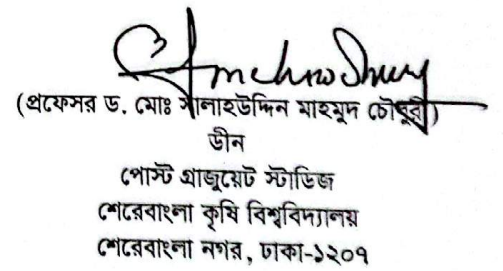 (প্রফেসর ড. মোঃ সালাহউদ্দিন মাহমুদ চৌধুরী)
ডীন
পোস্ট গ্রাজুয়েট স্টাডিজ
শেরেবাংলা কৃষি বিশ্ববিদ্যালয়
শেরেবাংলা নগর, ঢাকা-১২০৭